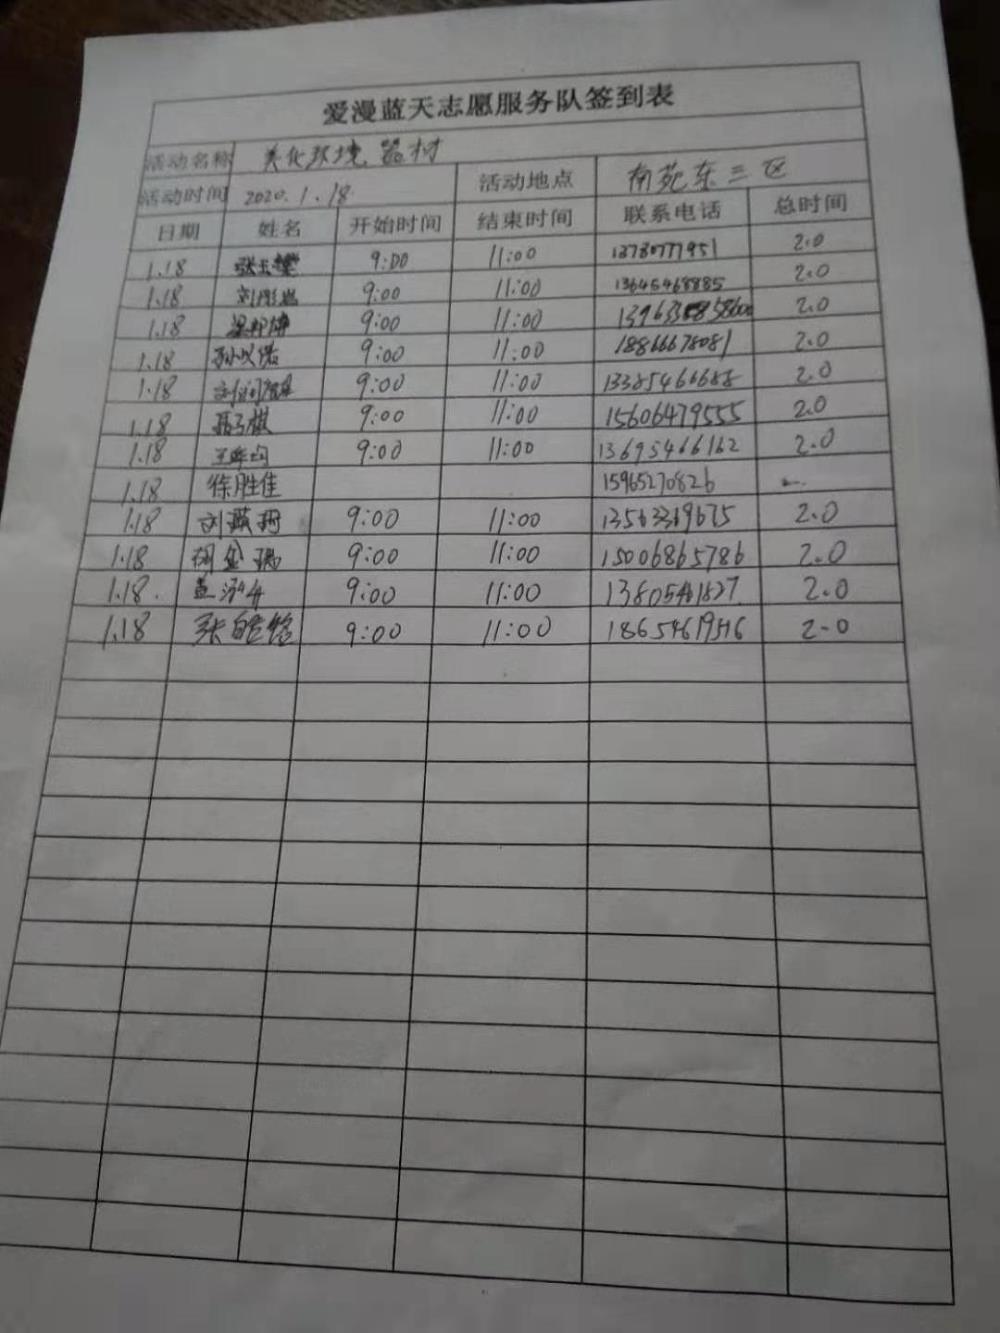 爱漫蓝天志愿服务队签到表
活动名称 美化环境 器材
活动时间 2020.1.18 活动地点 南苑东三区
日期 姓名 开始时间 结束时间 联系电话 总时间
1.18 9:00 11:00 13780777951 2.0
1.18 9:00 11:00 13645468885 2.0
1.18 9:00 11:00 2.0
1.18 孙以诺 9:00 11:00 18866678081 2.0
1.18 9:00 11:00 13385466688 2.0
1.18 聂子棋 9:00 11:00 15606479555 2.0
1.18 9:00 11:00 13695466162 2.0
1.18 徐胜佳 15965270826
1.18 9:00 11:00 13563369675 2.0
1.18 9:00 11:00 15006865786 2.0
1.18. 9:00 11:00 13805461827 2.0
1.18 张 9:00 11:00 2.0